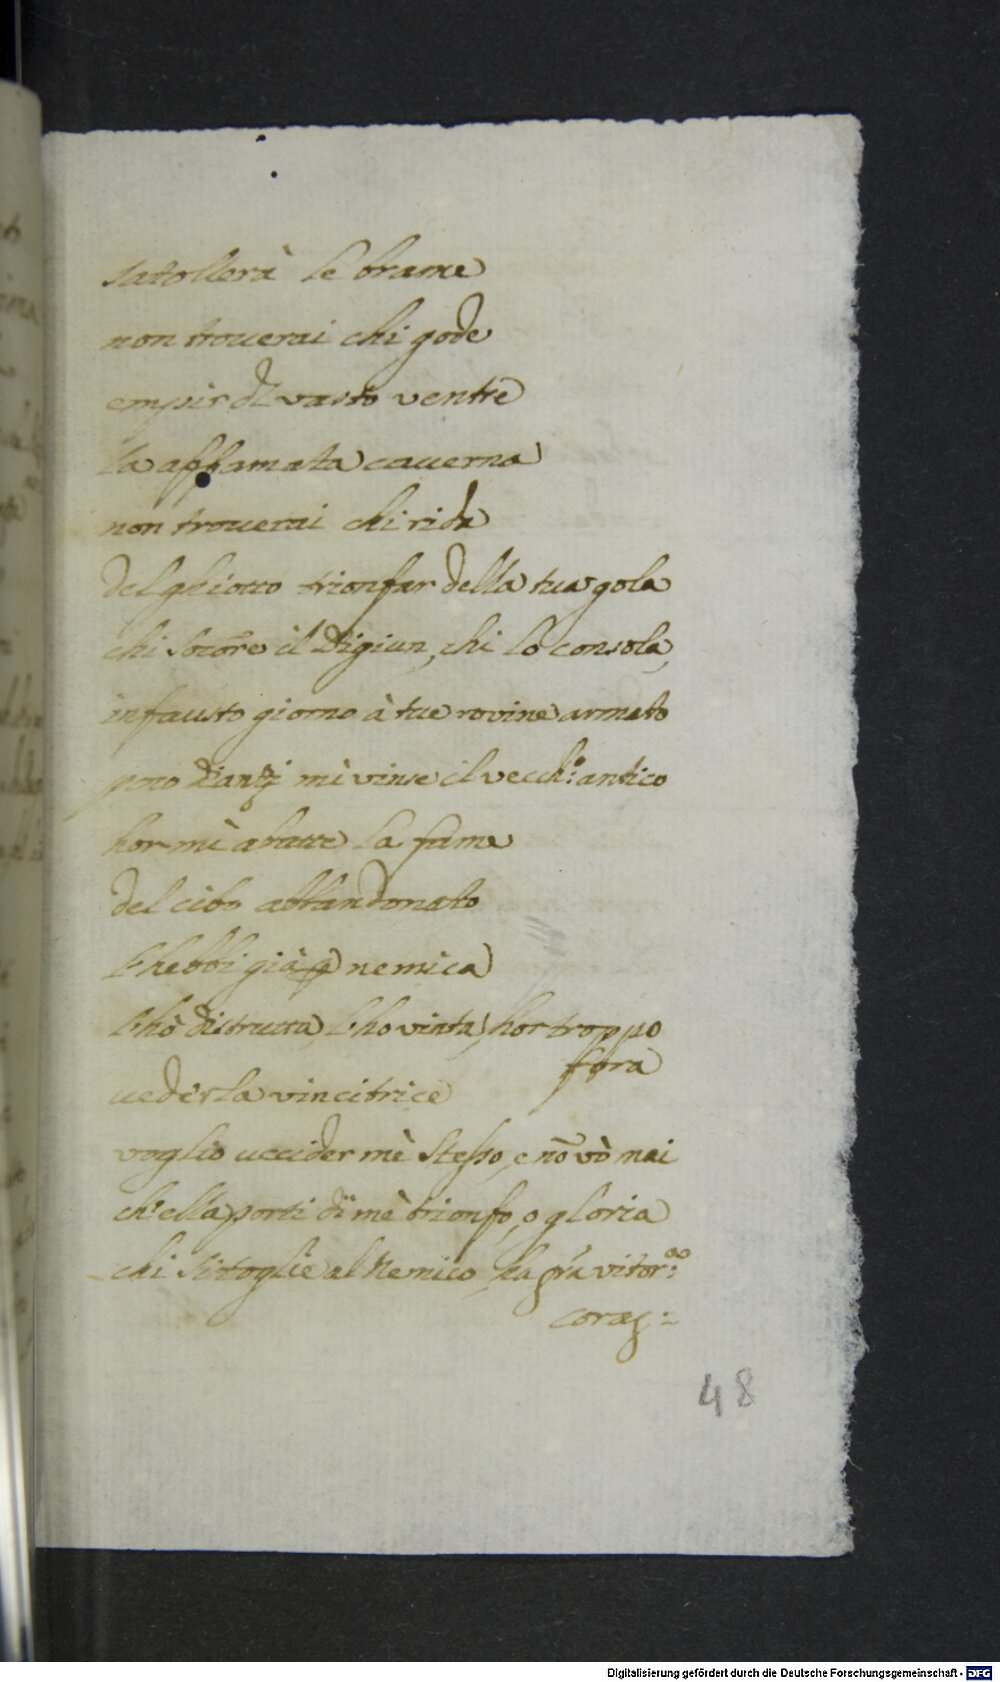 satollerà le brame
non trouerai chi gode
empir di vasto ventre
la affamata cauerna
non trouerai chi rida
del ghiotto trionfar della tua gola
chi socōre il digiun, chi lo consola,
infausto giorno à tue rovine armato
dianzi mi vinse il vecch:º antico
hor mi abatte la fame
del cibo abbandonato
l'hebbi già nemica
l'hò distrutta, l'ho vinta, hor troppo
fora
uederla vincitrice
voglio uccider mè stesso, e nō vò mai
ch'ella porti di mè trionfo, o gloria
chi si toglie al Nemico, ha vitor:ª
corag:
48
Digitalisierung gefördert durch die Deutsche Forschungsgemeinschaft - DFG